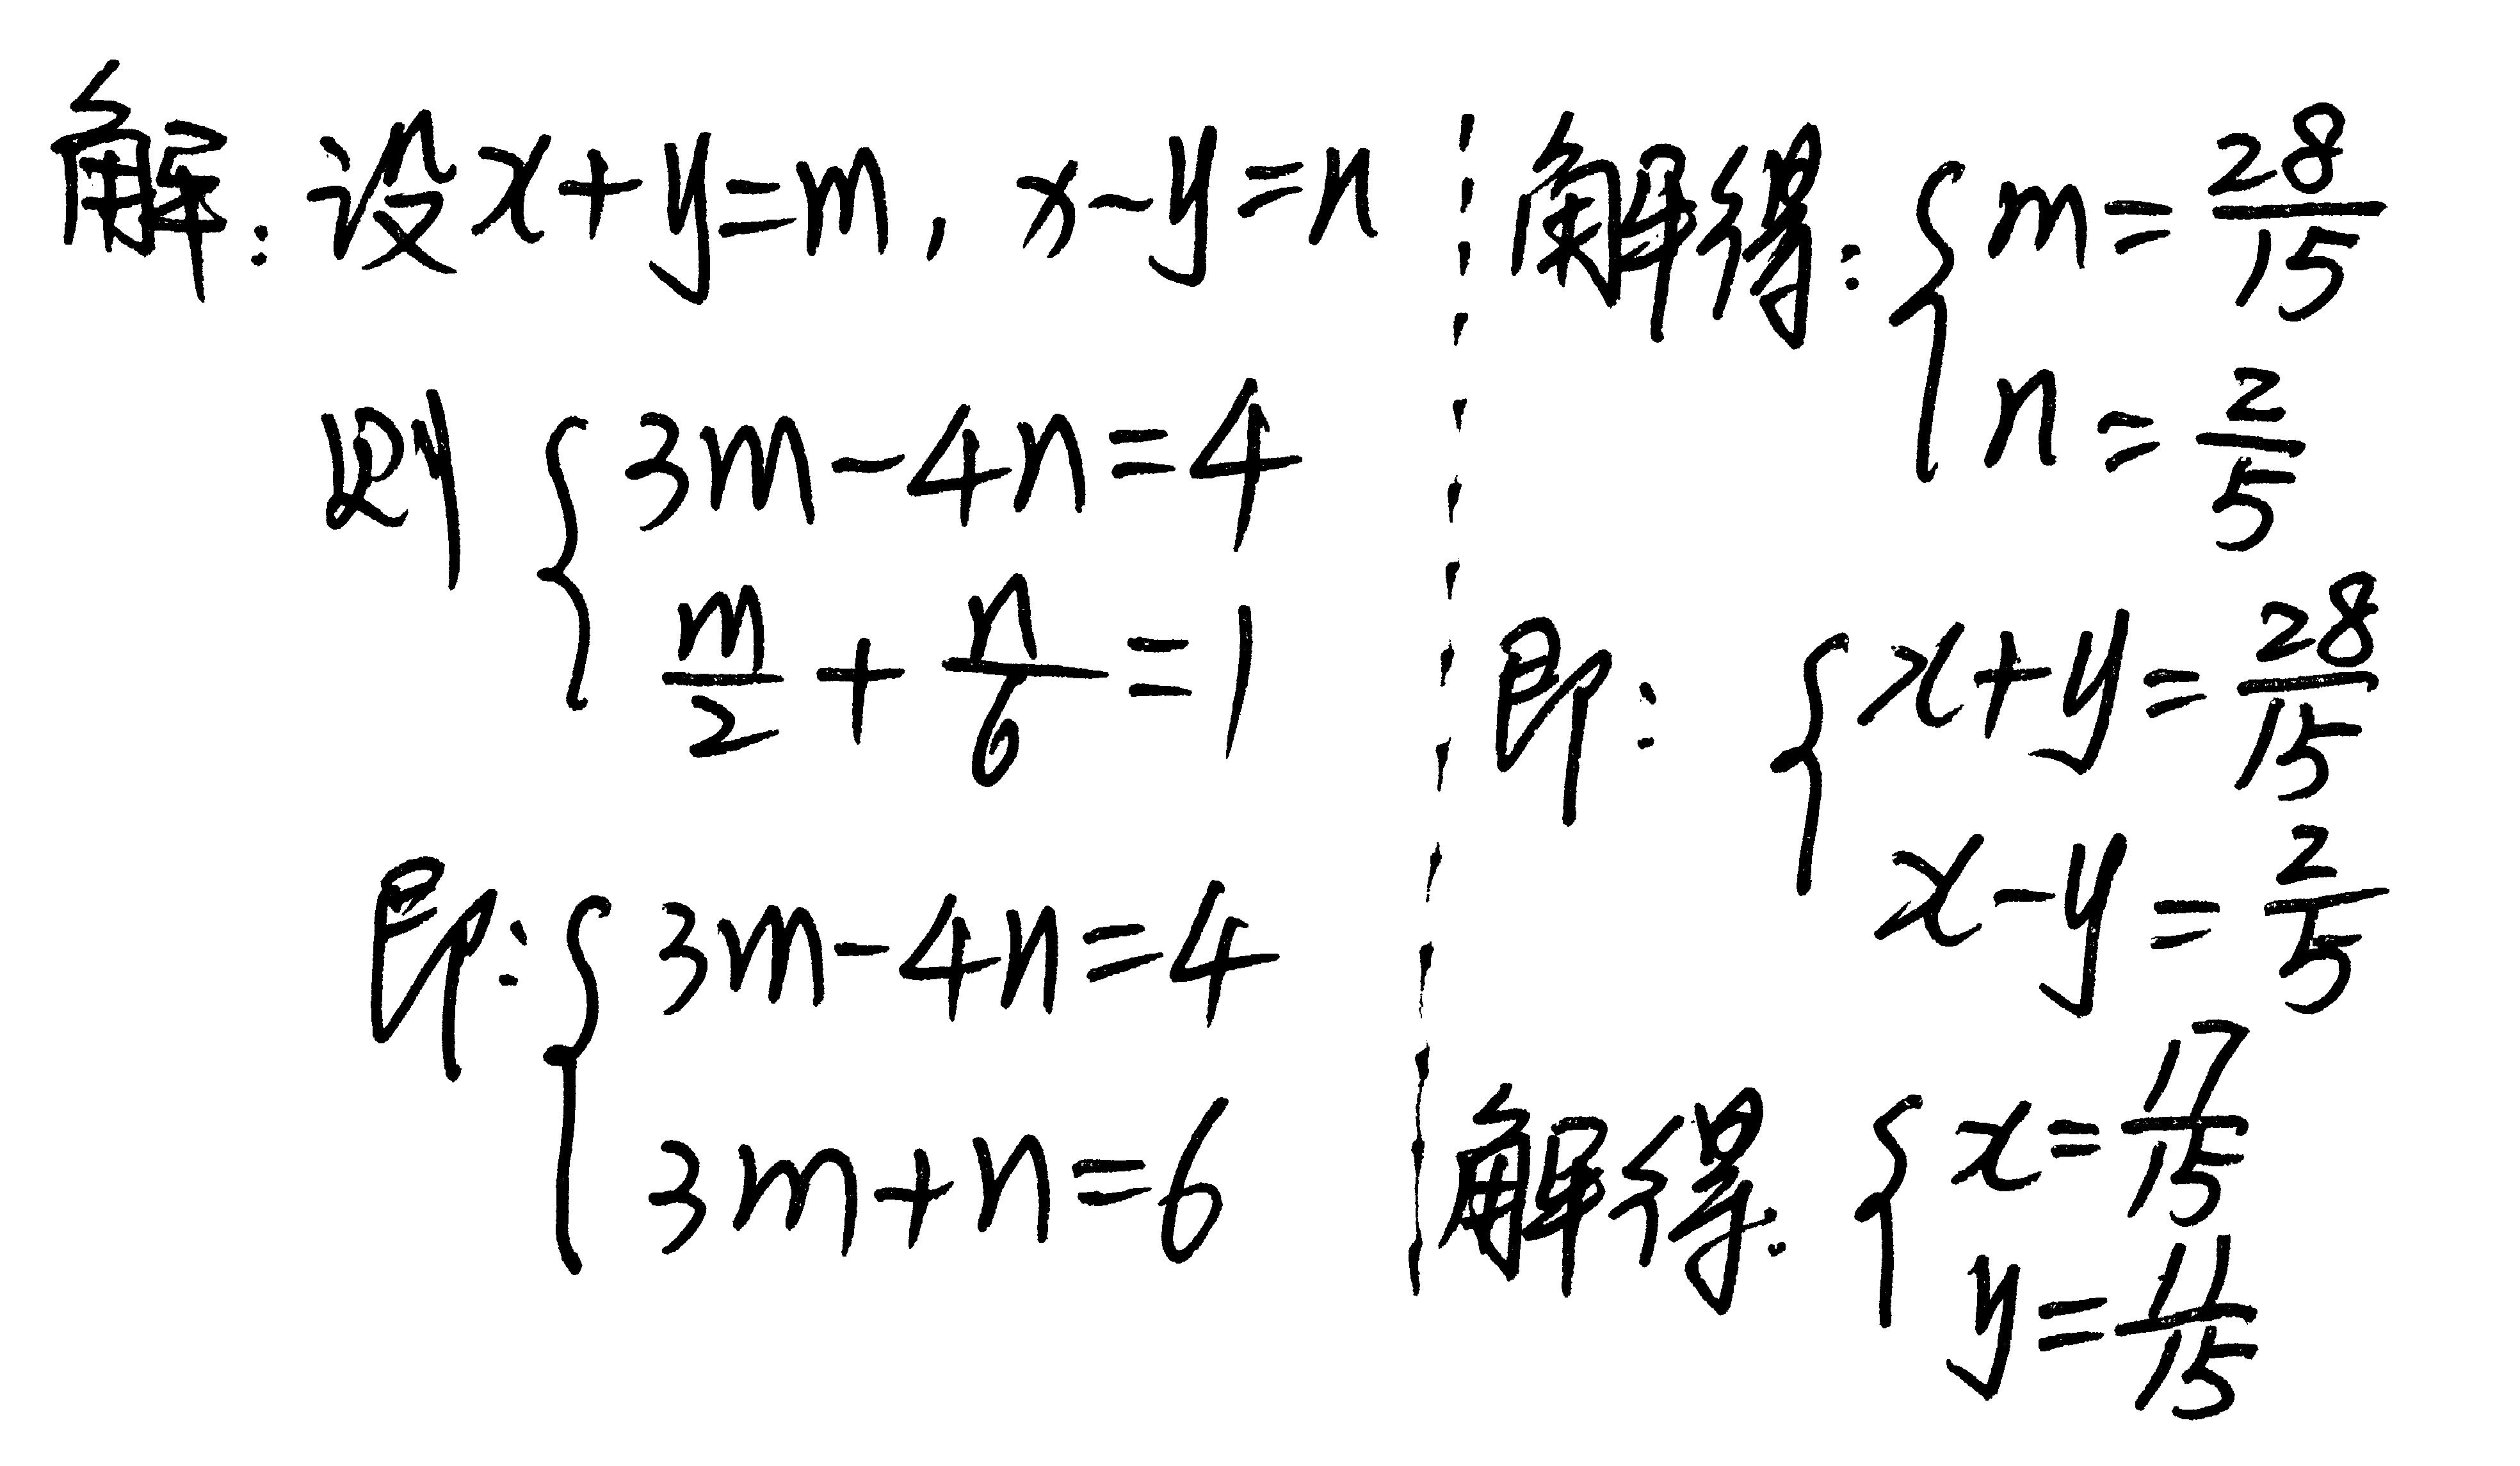 解:设x+y=m,x-y=n
则{3m-4n=4
m/2+n/6=1
即:{3m-4n=4
3m+n=6
解得:{m=28/15
n=2/5
即:{x+y=28/15
x-y=2/5
解得:{x=17/15
y=11/15